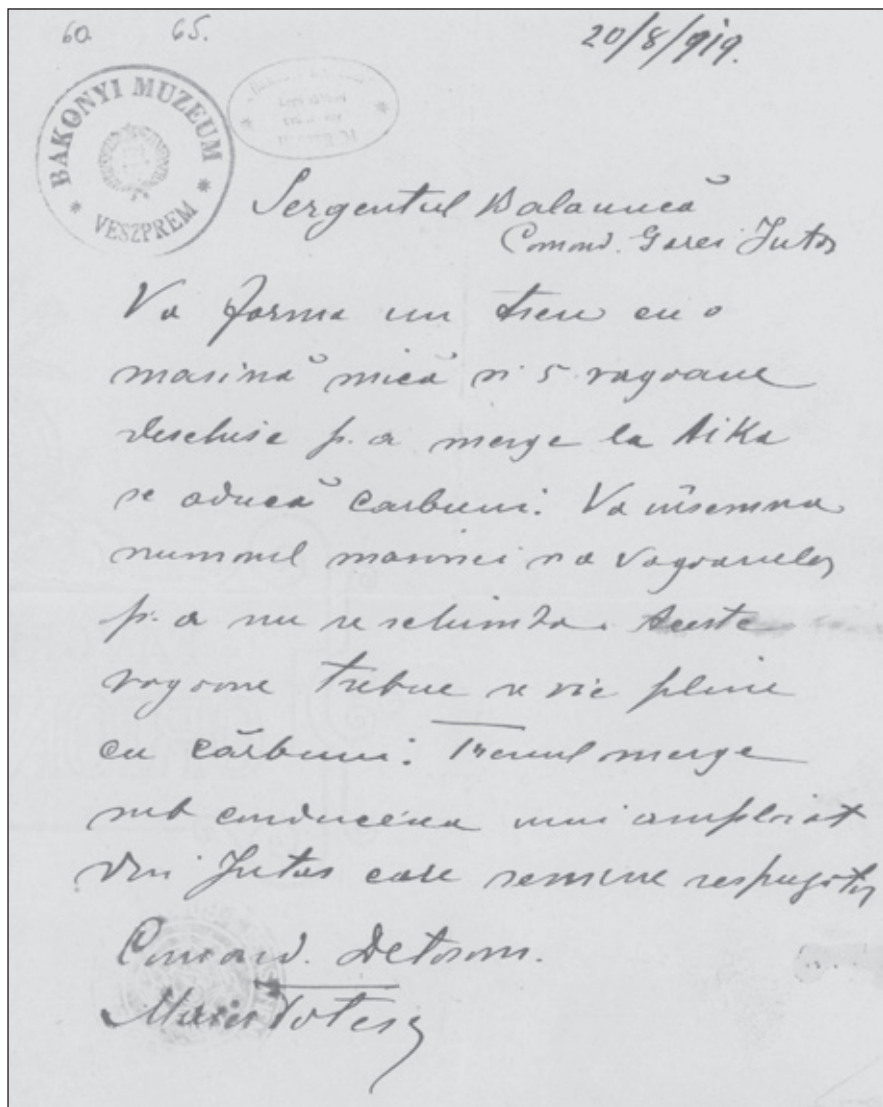 60. 65.
20/8/919.
BAKONYI MUZEUM
* VESZPREM *
Sergentul Balaucă
Comand. Garei Jutas
Va forma un tren cu o
masină mică si 5 vagoane
deschise p. a merge la Aika
se aducă carbuni. Va însemna
numarul masinei si a vagoanelor
p. a nu se schimba. Aceste
vagoane trebue se vie pline
cu cărbuni. Trenul merge
sub conducerea unui amploiat
din Jutas care remine respuzator
Comand. Detasam.
Maior